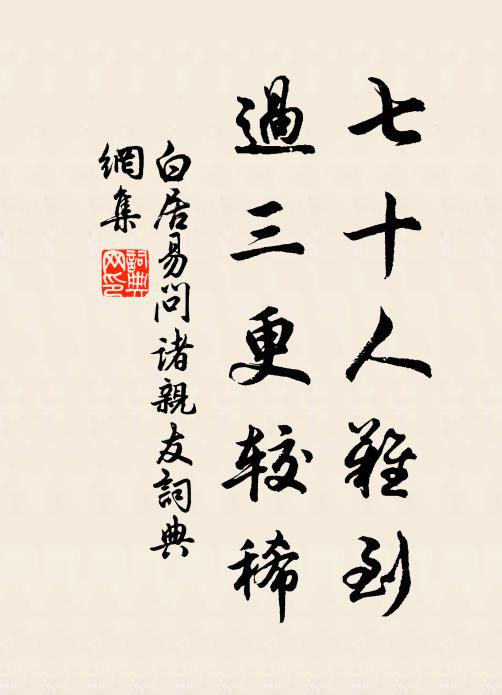 七十人難到
過三更較稀
白居易問諸親友詞典
網集
詞典网印